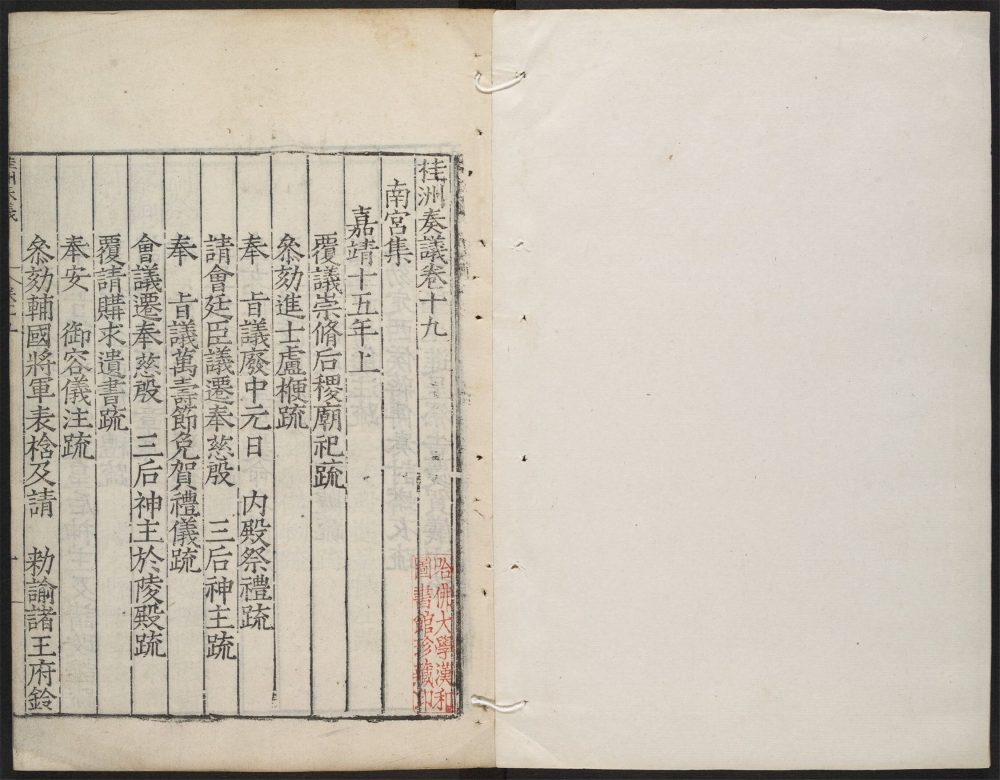 桂洲奏議卷十九
南宮集
嘉靖十五年上
覆議崇脩后稷廟祀疏
叅劾進士盧楩疏
奉　旨議廢中元日　內殿祭禮疏
請會廷臣議遷奉慈殿　三后神主疏
奉　旨議萬壽節免賀禮儀疏
會議遷奉慈殿　三后神主於陵殿疏
覆請購求遺書疏
奉安　御容儀注疏
叅劾輔國將軍表㭘及請　勑諭諸王府鈐
哈佛大學漢和
圖書館珍藏印